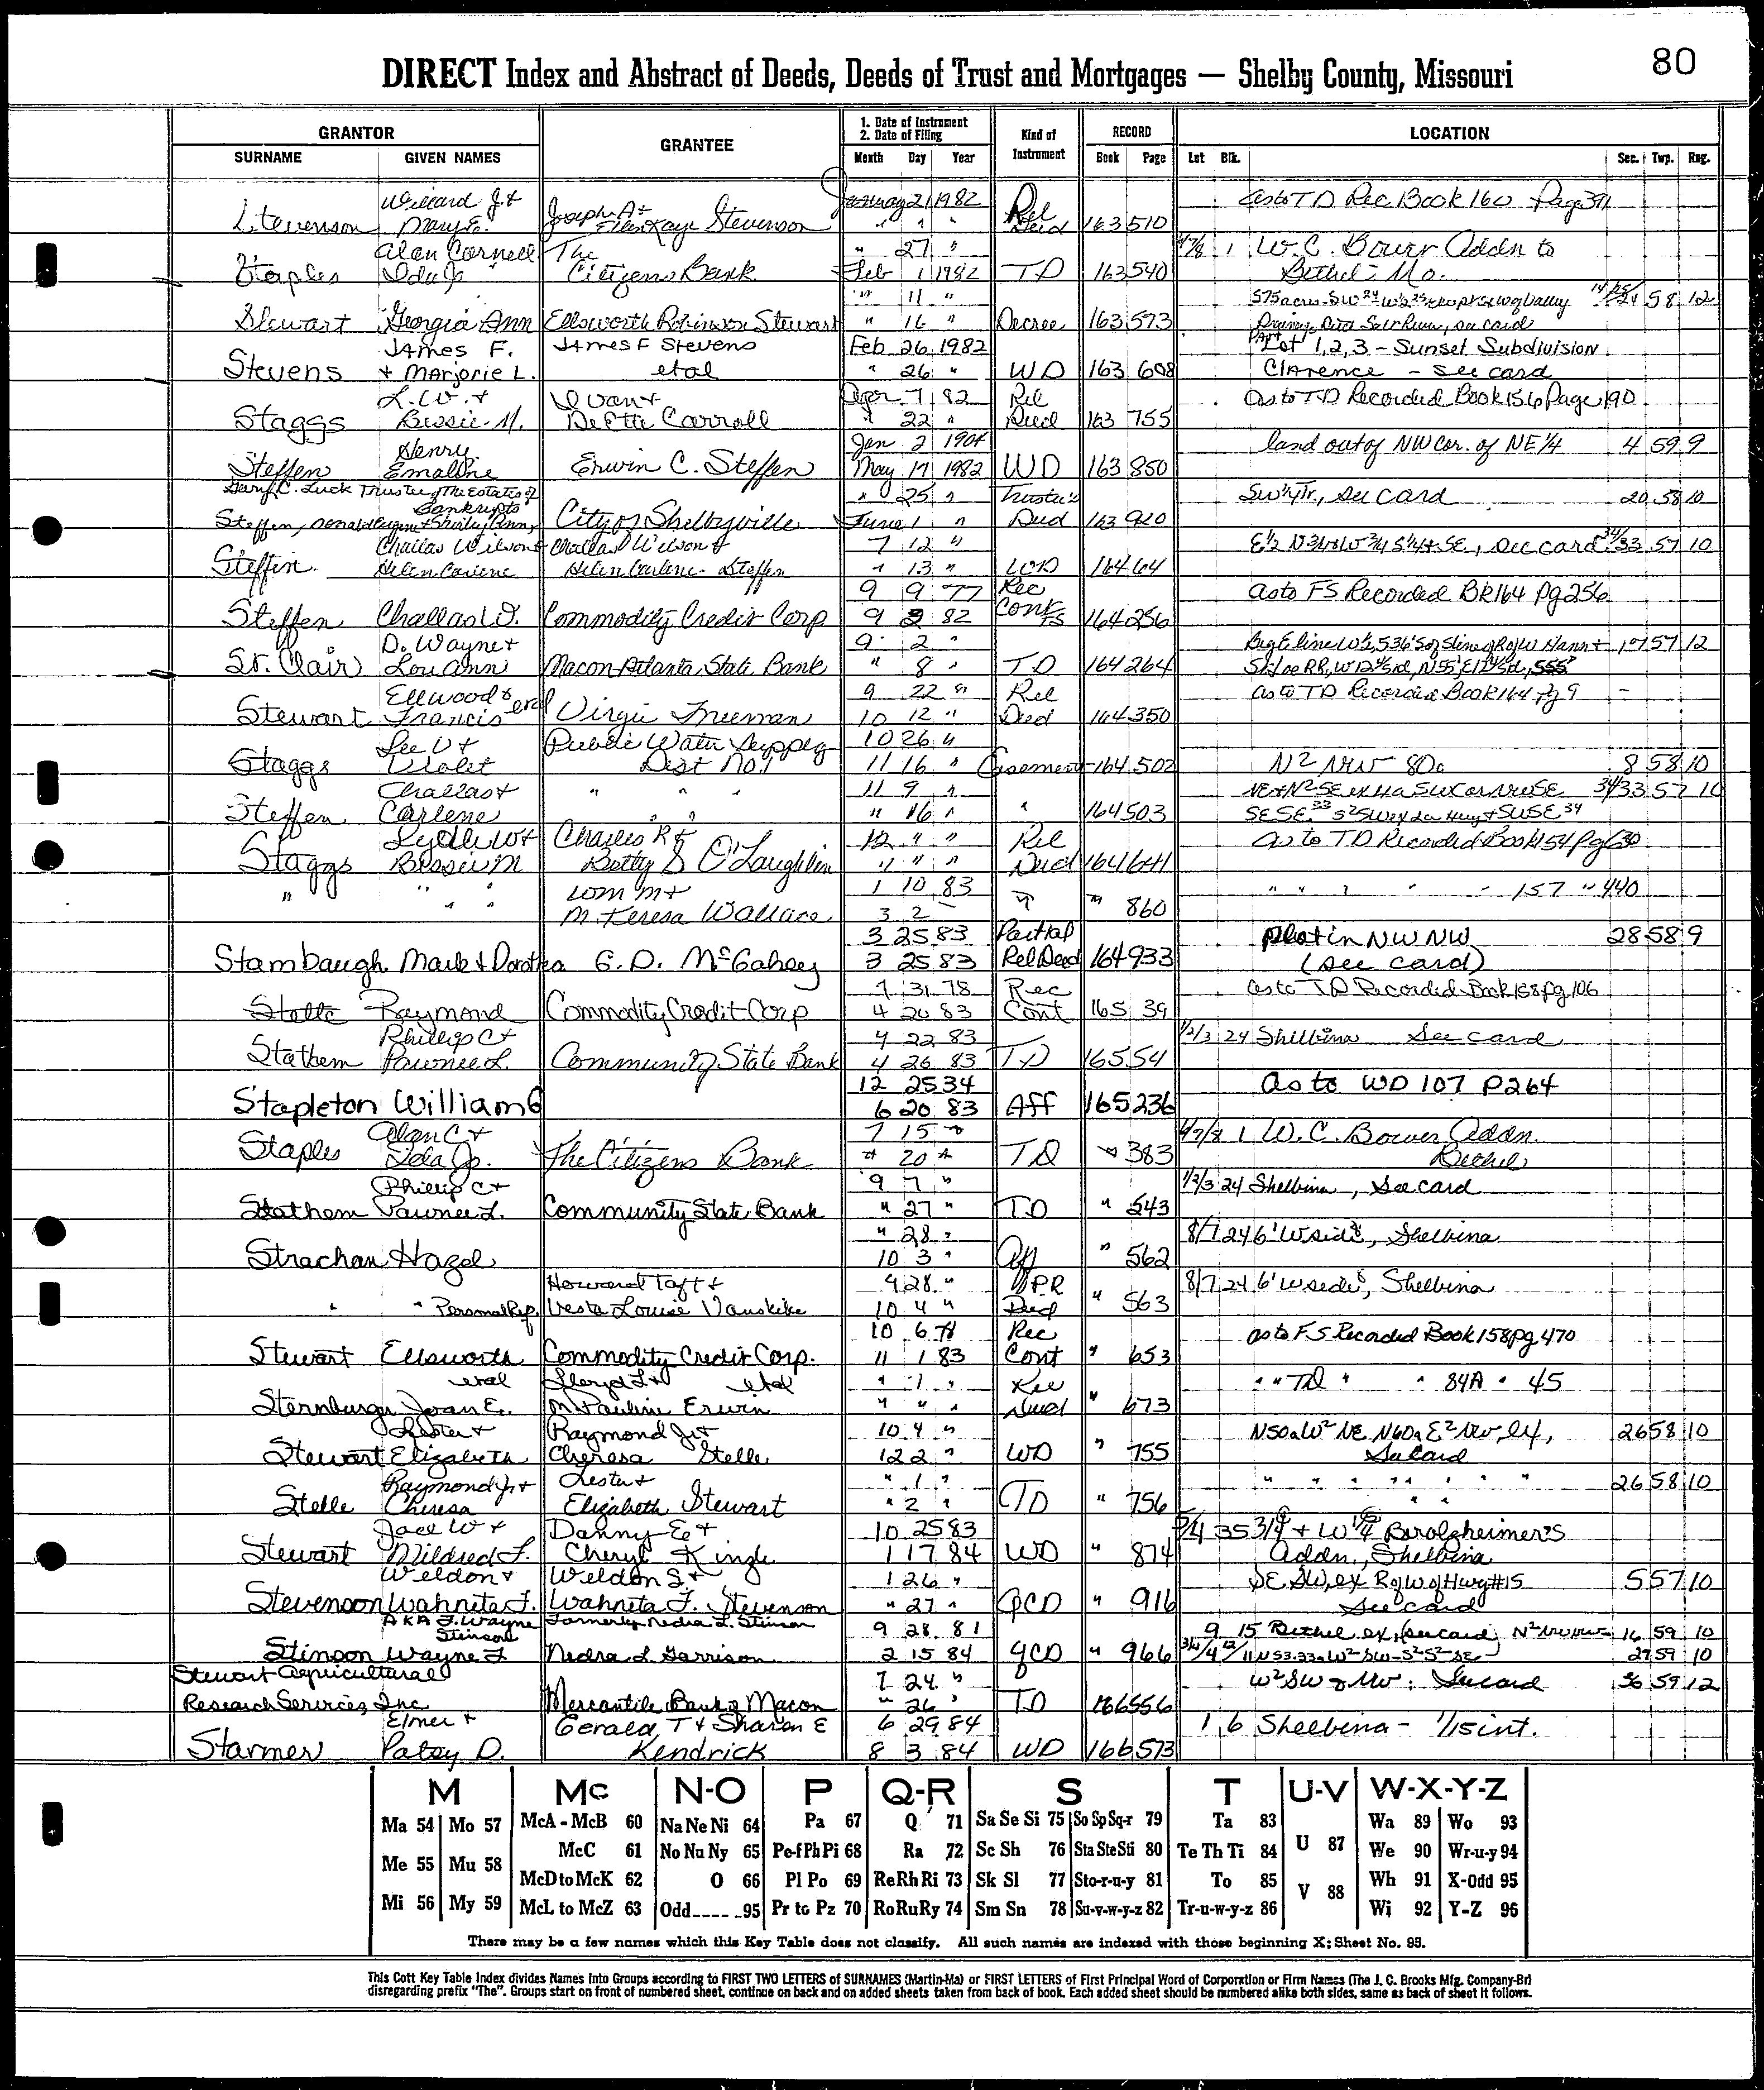 80
DIRECT Index and Abstract of Deeds, Deeds of Trust and Mortgages — Shelby County, Missouri
GRANTOR GRANTEE 1. Date of Instrument 2. Date of Filing Kind of Instrument RECORD LOCATION
SURNAME GIVEN NAMES Month Day Year Book Page Lot Blk. Sec. Twp. Rng.
Willard J. + January 21 1982 Rel as to TD Rec. Book 160 Page
Stevenson Mary E. Joseph A + Ellen Kaye Stevenson " " " Deed 163 510
Alan Cornell The " 27 " 1 W.C. Bower Addn to
Staples Ida Jo Citizens Bank Feb 1 1982 TD 163 540 Bethel - Mo.
" 11 " 58 12
Stewart Georgia Ann Ellsworth Robinson Stewart " 16 " Decree 163 573 see card
James F. James F Stevens Feb 26 1982 Part Lot 1,2,3 - Sunset Subdivision
Stevens + Marjorie L. etal " 26 " WD 163 608 Clarence - see card
L.W. + Ivan + Apr 7 82 Rel as to TD Recorded Book 156 Page 190
Staggs Bessie M. DeEtta Carroll " 22 " Deed 163 755
Henry Jan 2 1904 land out of NW Cor. of NE 1/4 4 59 9
Steffen Emaline Erwin C. Steffen May 17 1982 WD 163 850
Gary C. Luck Trustee of The Estates of Bankrupts " 25 " Trustee's SW 1/4 Tr., see card 20 58 10
Steffen, Donald Eugene + Shirley Ann City of Shelbyville June 1 " Deed 163 920
Challas Wilson + Challas Wilson + 7 12 " see card 33 57 10
Steffen Helen Carlene Helen Carlene Steffen " 13 " WD 164 64
9 9 77 Rec as to FS Recorded BK 164 Pg 256
Steffen Challas W. Commodity Credit Corp 9 2 82 Cont FS 164 256
D. Wayne + 9 2 " 17 57 12
St. Clair Lou Ann Macon-Atlanta State Bank " 8 " TD 164 264
Ellwood + etal 9 22 " Rel as to TD Recorded Book 164 Pg 9
Stewart Francis Virgie Freeman 10 12 " Deed 164 350
Lee V + Public Water Supply 10 26 "
Staggs Violet Dist No. 1 11 16 " Easement 164 502 N2 NW 80a 8 58 10
Challas + " " " 11 9 " 34/33 57 10
Steffen Carlene " " " 16 " " 164 503
Lydle W + Charles R + 12 " " Rel as to TD Recorded Book 154 Pg 630
Staggs Bessie M Betty S O'Laughlin " " " Deed 164 641
" " " Wm M + 1 10 83 " " " " " " 157 " 440
M. Teresa Wallace 3 2 " 860
3 25 83 Partial plot in NW NW 28 58 9
Stambaugh Mark + Dorothea G.D. McGahey 3 25 83 Rel Deed 164 933 (see card)
7 31 78 Rec as to TD Recorded Book 158 pg 106
Stotts Raymond Commodity Credit Corp 4 20 83 Cont 165 39
Phillip C + 4 22 83 1/2/3 24 Shelbina See card
Stathem Pawnee L. Community State Bank 4 26 83 TD 165 54
12 25 34 as to WD 107 P264
Stapleton William G 6 20 83 Aff 165 236
Alan C + 7 15 " 1 W.C. Bower Addn.
Staples Ida Jo. The Citizens Bank " 20 " TD " 383 Bethel
Phillip C + 9 7 " 1/2/3 24 Shelbina, See card
Stathem Pawnee L. Community State Bank " 27 " TD " 543
" 28 " 8/7 24 6' W side, Shelbina
Strachan Hazel 10 3 " Aff " 562
Howard Taft + 9 28 " PR 8/7 24 6' W side, Shelbina
" " Personal Rep. Vesta Louise Vanskike 10 4 " Deed " 563
10 6 78 Rec as to F.S Recorded Book 158 pg. 470
Stewart Ellsworth Commodity Credit Corp. 11 1 83 Cont " 653
etal Lloyd L + etal " 1 " Rel " " TD " " 84A " 45
Sternburgh Joan E. M Pauline Erwin " " " Deed " 673
Lester + Raymond Jr + 10 4 " N50a W2 NE N60a E2 NW, 26 58 10
Stewart Elizabeth Cheresa Stelle 12 2 " WD " 755 See card
Raymond Jr + Lester + " 1 " " " " " " " 26 58 10
Stelle Cheresa Elizabeth Stewart " 2 " TD " 756
Jack W + Danny E + 10 25 83 35 Berolzheimer's
Stewart Mildred F. Cheryl Kingle 1 17 84 WD " 874 Addn., Shelbina
Weldon + Weldon S + 1 26 " SE SW, ex R of W of Hwy #15 5 57 10
Stevenson Wahneta F. Wahneta F. Stevenson " 27 " QCD " 916 See card
AKA F. Wayne Stinson Formerly Nedra L. Stinson 9 28 81 9 15 Bethel ex. (see card) 16 59 10
Stinson Wayne F Nedra L Garrison 2 15 84 QCD " 966 27 59 10
Stewart Agricultural 7 24 " W2 SW + NW: See card 36 59 12
Research Services, Inc Mercantile Bank of Macon " 26 " TD 166 556
Elmer + Gerald T + Sharon E 6 29 84 1 6 Shelbina - 1/15 int.
Starmer Patsy D. Kendrick 8 3 84 WD 166 573
M Mc N-O P Q-R S T U-V W-X-Y-Z
Ma 54 Mo 57 McA - McB 60 Na Ne Ni 64 Pa 67 Q 71 Sa Se Si 75 So Sp Sq-r 79 Ta 83 Wa 89 Wo 93
Me 55 Mu 58 McC 61 No Nu Ny 65 Pe-f Ph Pi 68 Ra 72 Sc Sh 76 Sta Ste Sti 80 Te Th Ti 84 U 87 We 90 Wr-u-y 94
McD to McK 62 O 66 Pl Po 69 Re Rh Ri 73 Sk Sl 77 Sto-r-u-y 81 To 85 Wh 91 X-Odd 95
Mi 56 My 59 McL to McZ 63 Odd 95 Pr to Pz 70 Ro Ru Ry 74 Sm Sn 78 Su-v-w-y-z 82 Tr-u-w-y-z 86 V 88 Wi 92 Y-Z 96
There may be a few names which this Key Table does not classify. All such names are indexed with those beginning X; Sheet No. 95.
This Cott Key Table Index divides Names into Groups according to FIRST TWO LETTERS of SURNAMES (Martin-Ma) or FIRST LETTERS of First Principal Word of Corporation or Firm Names (The J. C. Brooks Mfg. Company-Br)
disregarding prefix "The". Groups start on front of numbered sheet, continue on back and on added sheets taken from back of book. Each added sheet should be numbered alike both sides, same as back of sheet it follows.